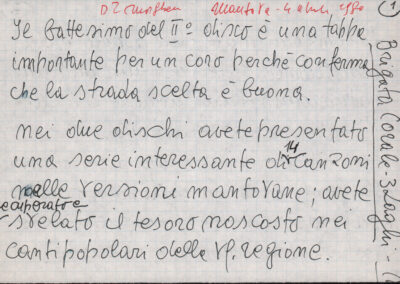 Mantova - 4 1980
1
Il battesimo del II° disco è una tappa
importante per un coro perché conferma
che la strada scelta è buona.
nei due dischi avete presentato
una serie interessante di 14 Canzoni
nelle versioni mantovane; avete
recuperato e
svelato il tesoro nascosto nei
canti popolari della vs. regione.
Brigata Corale 3 Laghi -